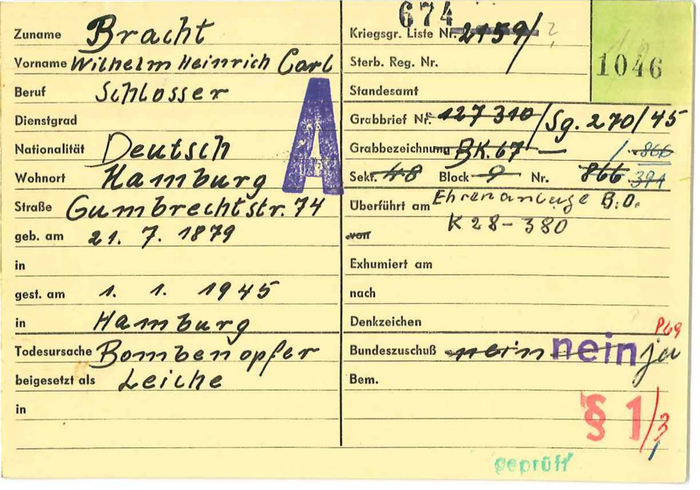 Zuname Bracht
Vorname Wilhelm Heinrich Carl
Beruf Schlosser
Dienstgrad
Nationalität Deutsch
Wohnort Hamburg
Straße Gumbrechtstr. 74
geb. am 21. 7. 1879
in
gest. am 1. 1. 1945
in Hamburg
Todesursache Bombenopfer
beigesetzt als Leiche
in
A
674
Kriegsgr. Liste Nr. 2159/?
1046
Sterb. Reg. Nr.
Standesamt
Grabbrief Nr. 127310/Sg. 270/45
Grabbezeichnung BK. 67 — /. 866
Sekt. 48 Block 9 Nr. 866 394
Überführt am Ehrenanlage B.O.
von K 28-380
Exhumiert am
nach
Denkzeichen
P69
Bundeszuschuß nein nein ja
Bem.
§ 1/3
1
geprüft